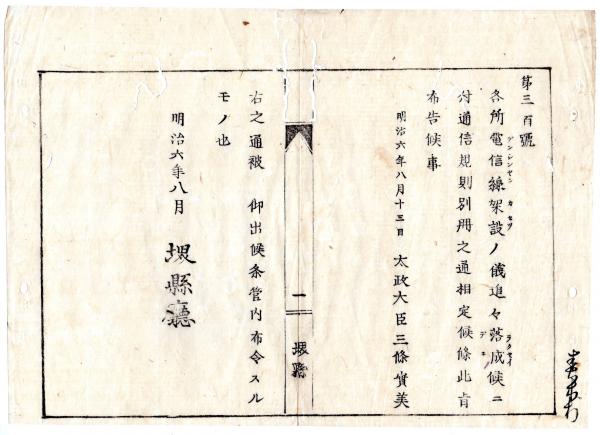 第三百號
各所電信線架設ノ儀追々落成候ニ
デンシンセン カセツ ラクセイ
付通信規則別冊之通相定候條此旨
布告候事
明治六年八月十三日 太政大臣三條實美
一
堺縣
右之通被 仰出候条管内布令スル
モノ也
明治六年八月 堺縣廳